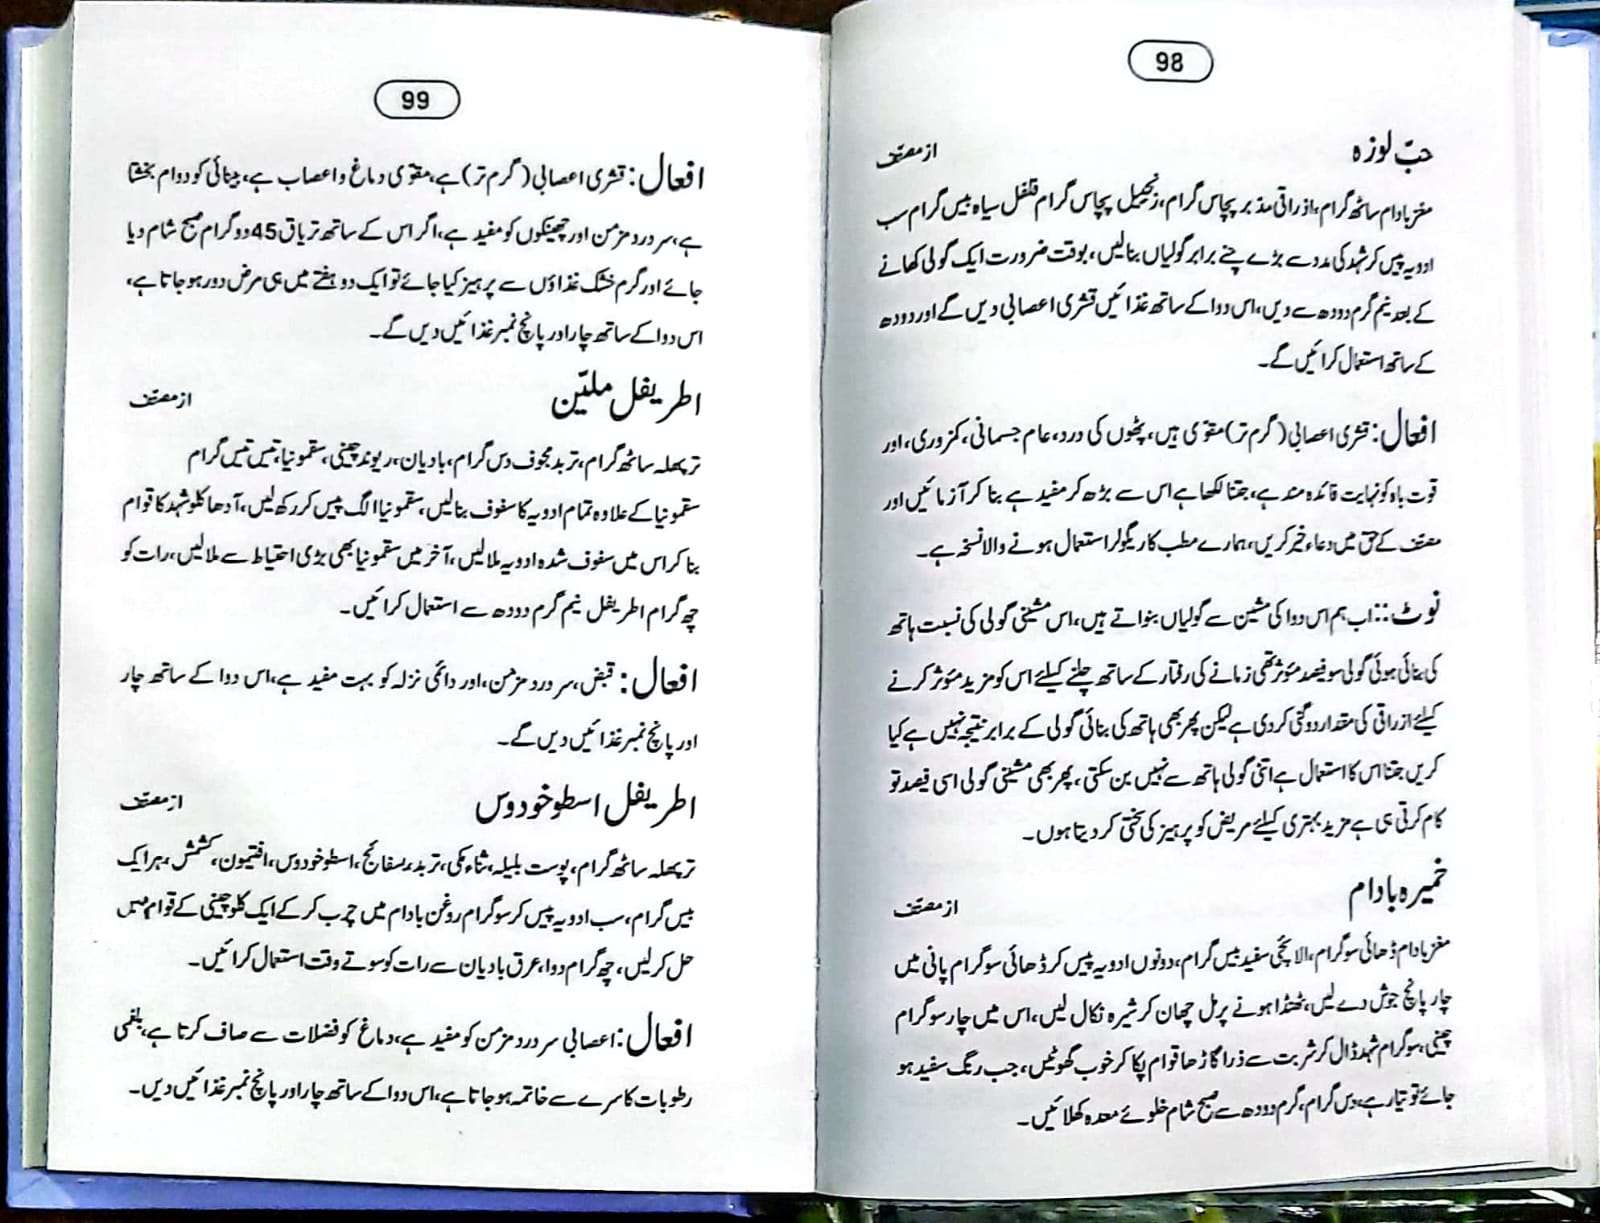 98
حبّ لوزہ
از مصنّف
مغز بادام ساٹھ گرام، ازراقی مدبر پچاس گرام، زنجبیل پچاس گرام فلفل سیاہ بیس گرام سب
ادویہ پیس کر شہد کی مدد سے بڑے چنے برابر گولیاں بنالیں، بوقت ضرورت ایک گولی کھانے
کے بعد نیم گرم دودھ سے دیں، اس دوا کے ساتھ غذائیں قشری اعصابی دیں گے اور دودھ
کے ساتھ استعمال کرائیں گے۔
افعال: قشری اعصابی (گرم تر) مقوّی ہیں، پٹھوں کی درد، عام جسمانی، کمزوری، اور
قوت باہ کو نہایت فائدہ مند ہے، جتنا لکھا ہے اس سے بڑھ کر مفید ہے بنا کر آزمائیں اور
مصنّف کے حق میں دعاء خیر کریں، ہمارے مطب کا ریگولر استعمال ہونے والا نسخہ ہے۔
نوٹ:: اب ہم اس دوا کی مشین سے گولیاں بنواتے ہیں، اس مشینی گولی کی نسبت ہاتھ
کی بنائی ہوئی گولی سو فیصد مئوثر تھی زمانے کی رفتار کے ساتھ چلنے کیلئے اس کو مزید مئوثر کرنے
کیلئے ازراقی کی مقدار دوگنی کردی ہے لیکن پھر بھی ہاتھ کی بنائی گولی کے برابر نتیجہ نہیں ہے کیا
کریں جتنا اس کا استعمال ہے اتنی گولی ہاتھ سے نہیں بن سکتی، پھر بھی مشینی گولی اسی فیصد تو
کام کرتی ہی ہے مزید بہتری کیلئے مریض کو پرہیز کی سختی کر دیتا ہوں۔
خمیرہ بادام
از مصنّف
مغز بادام ڈھائی سو گرام، الائچی سفید بیس گرام، دونوں ادویہ پیس کر ڈھائی سو گرام پانی میں
چار پانچ جوش دے لیں، ٹھنڈا ہونے پر مل چھان کر شیرہ نکال لیں، اس میں چار سو گرام
چینی، سو گرام شہد ڈال کر شربت سے ذرا گاڑھا قوام پکا کر خوب گھوٹیں، جب رنگ سفید ہو
جائے تو تیار ہے، دس گرام، گرم دودھ سے صبح شام خلوئے معدہ کھلائیں۔
99
افعال: قشری اعصابی (گرم تر) ہے، مقوّی دماغ و اعصاب ہے، بینائی کو دوام بخشتا
ہے، سر درد مزمن اور چھینکوں کو مفید ہے، اگر اس کے ساتھ تریاق 45 دو گرام صبح شام دیا
جائے اور گرم خشک غذاؤں سے پرہیز کیا جائے تو ایک دو ہفتے میں ہی مرض دور ہو جاتا ہے،
اس دوا کے ساتھ چار اور پانچ نمبر غذائیں دیں گے۔
اطریفل ملیّن
از مصنّف
ترپھلہ ساٹھ گرام، تربد مجوف دس گرام، بادیان، ریوند چینی، سقمونیا، تیس تیس گرام
سقمونیا کے علاوہ تمام ادویہ کا سفوف بنالیں، سقمونیا الگ پیس کر رکھ لیں، آدھا کلو شہد کا قوام
بنا کر اس میں سفوف شدہ ادویہ ملالیں، آخر میں سقمونیا بھی بڑی احتیاط سے ملالیں، رات کو
چھ گرام اطریفل نیم گرم دودھ سے استعمال کرائیں۔
افعال: قبض، سر درد مزمن، اور دائمی نزلہ کو بہت مفید ہے، اس دوا کے ساتھ چار
اور پانچ نمبر غذائیں دیں گے۔
اطریفل اسطوخودوس
از مصنّف
ترپھلہ ساٹھ گرام، پوست بلیلہ، ثناء مکی، تربد، بسفائج، اسطوخودوس، افتیمون، کشمش، ہر ایک
بیس گرام، سب ادویہ پیس کر سو گرام روغن بادام میں چرب کر کے ایک کلو چینی کے قوام میں
حل کرلیں، چھ گرام دوا، عرق بادیان سے رات کو سوتے وقت استعمال کرائیں۔
افعال: اعصابی سر درد مزمن کو مفید ہے، دماغ کو فضلات سے صاف کرتا ہے، بلغمی
رطوبات کا سرے سے خاتمہ ہو جاتا ہے، اس دوا کے ساتھ چار اور پانچ نمبر غذائیں دیں۔